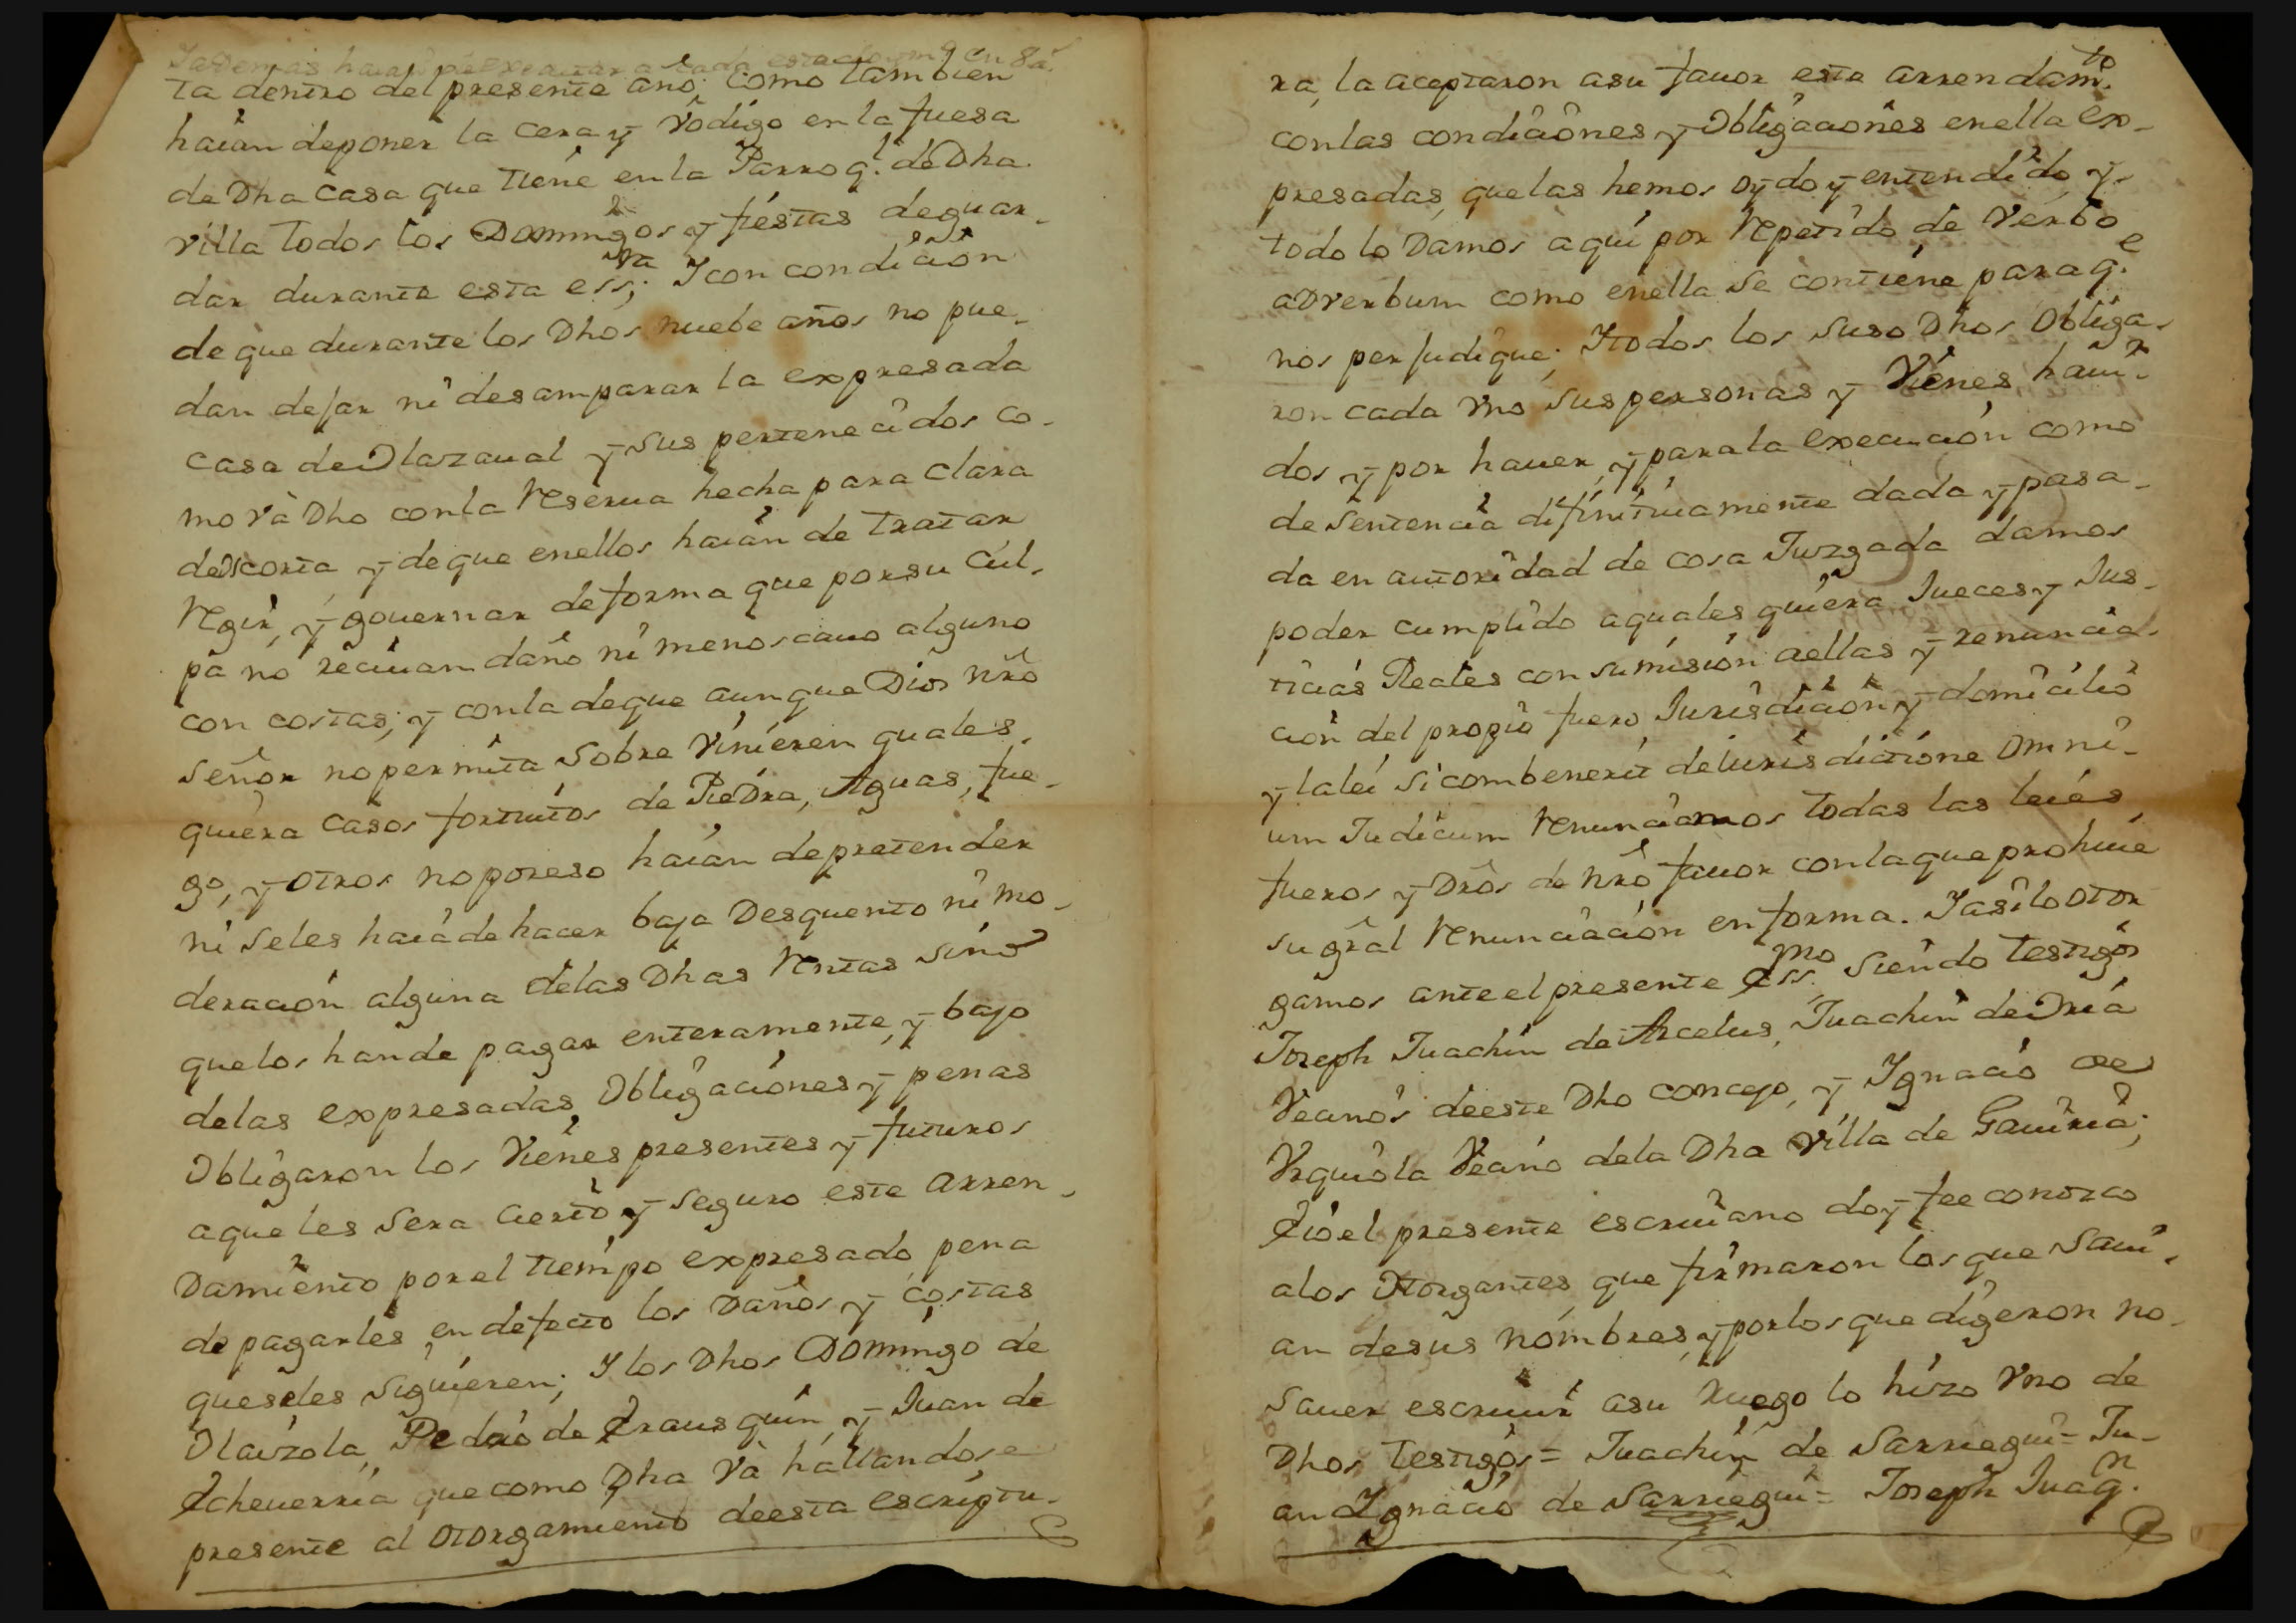 ta dentro del presente año; como tambien
haian deponer la Cera y Vodigo en la fuesa
de Dha Casa que tiene en la Parroq.l de Dha
Villa todos los Domingos y fiestas deguar-
dar durante esta ess.ra; Y con condicion
de que durante los Dhos nuebe años no pue-
dan dejar ni desamparar la expresada
Casa de Olazaual y sus pertenecidos co-
mo va Dho conla Reserua hecha para Clara
de y de que enellos haian de tratar
Regir, y gouernar de forma que por su Cul-
pa no reciuan daño ni menoscauo alguno
con costas; y conla deque aunque Dios nro
Señor no permita Sobre Vinieren quales-
quiera Casos fortuitos de Piedra, Aguas, fue-
go, y otros no poreso haian depretender
ni seles haia de hacer baja Desquento ni mo-
deracion alguna delas Dhas Rentas sino
quelos hande pagar enteramente, y bajo
delas expresadas Obligaciones y penas
Obligaron los Vienes presentes y futuros
aqueles sera cierto y seguro este Arren-
Damiento por el tiempo expresado pena
de pagarles en defecto los Daños y costas
queseles siguieren; Y los Dhos Domingo de
Olaizola, Pedro de Yrausquin, y Juan de
Echeuerria que como Dha va hallandose
presente al otorgamiento deesta escriptu-
ra, la aceptaron asu fauor este arrendam.to
conlas condiciones y Obligaciones enella ex-
presadas, quelas hemos oydo y entendido y
todo lo Damos aqui por Repetido de Verbo
adverbum como enella se contiene para q.e
nos perjudique; Y todos los suso Dhos Obliga-
ron cada vno sus personas y Vienes haui-
dos y por hauer, y para la execucion como
de sentencia difinitiuamente dada y pasa-
da en autoridad de cosa Juzgada damos
poder cumplido a quales quiera Jueces y Jus-
ticias Reales con sumision aellas y renuncia-
cion del propio fuero, Jurisdicion y domicilio
y la lei si combenerit deiurisdictione omni-
um Judicum Renunciamos todas las leies
fueros y Dros de nro fauor conla que prohiuie
su gral Renunciacion en forma. Y asi lo otor
gamos ante el presente ess.no siendo testigos
Joseph Juachin de Arcelus, Juachin de Oria
Vecinos deeste Dho concejo, y Ignacio de
Vrquiola Vecino dela Dha Villa de Gauiria;
E io el presente escriuano doy fee conozco
alos Otorgantes que firmaron los que saui-
an desus nombres, y porlos que digeron no
sauer escriuir asu ruego lo hizo Vno de
Dhos testigos = Juachin de Sarriegui = Ju-
an Ygnacio de Sarriegui = Joseph Juaq.n